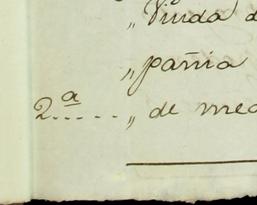 „ Viuda d
„ pañia
2.ª..... „ de med